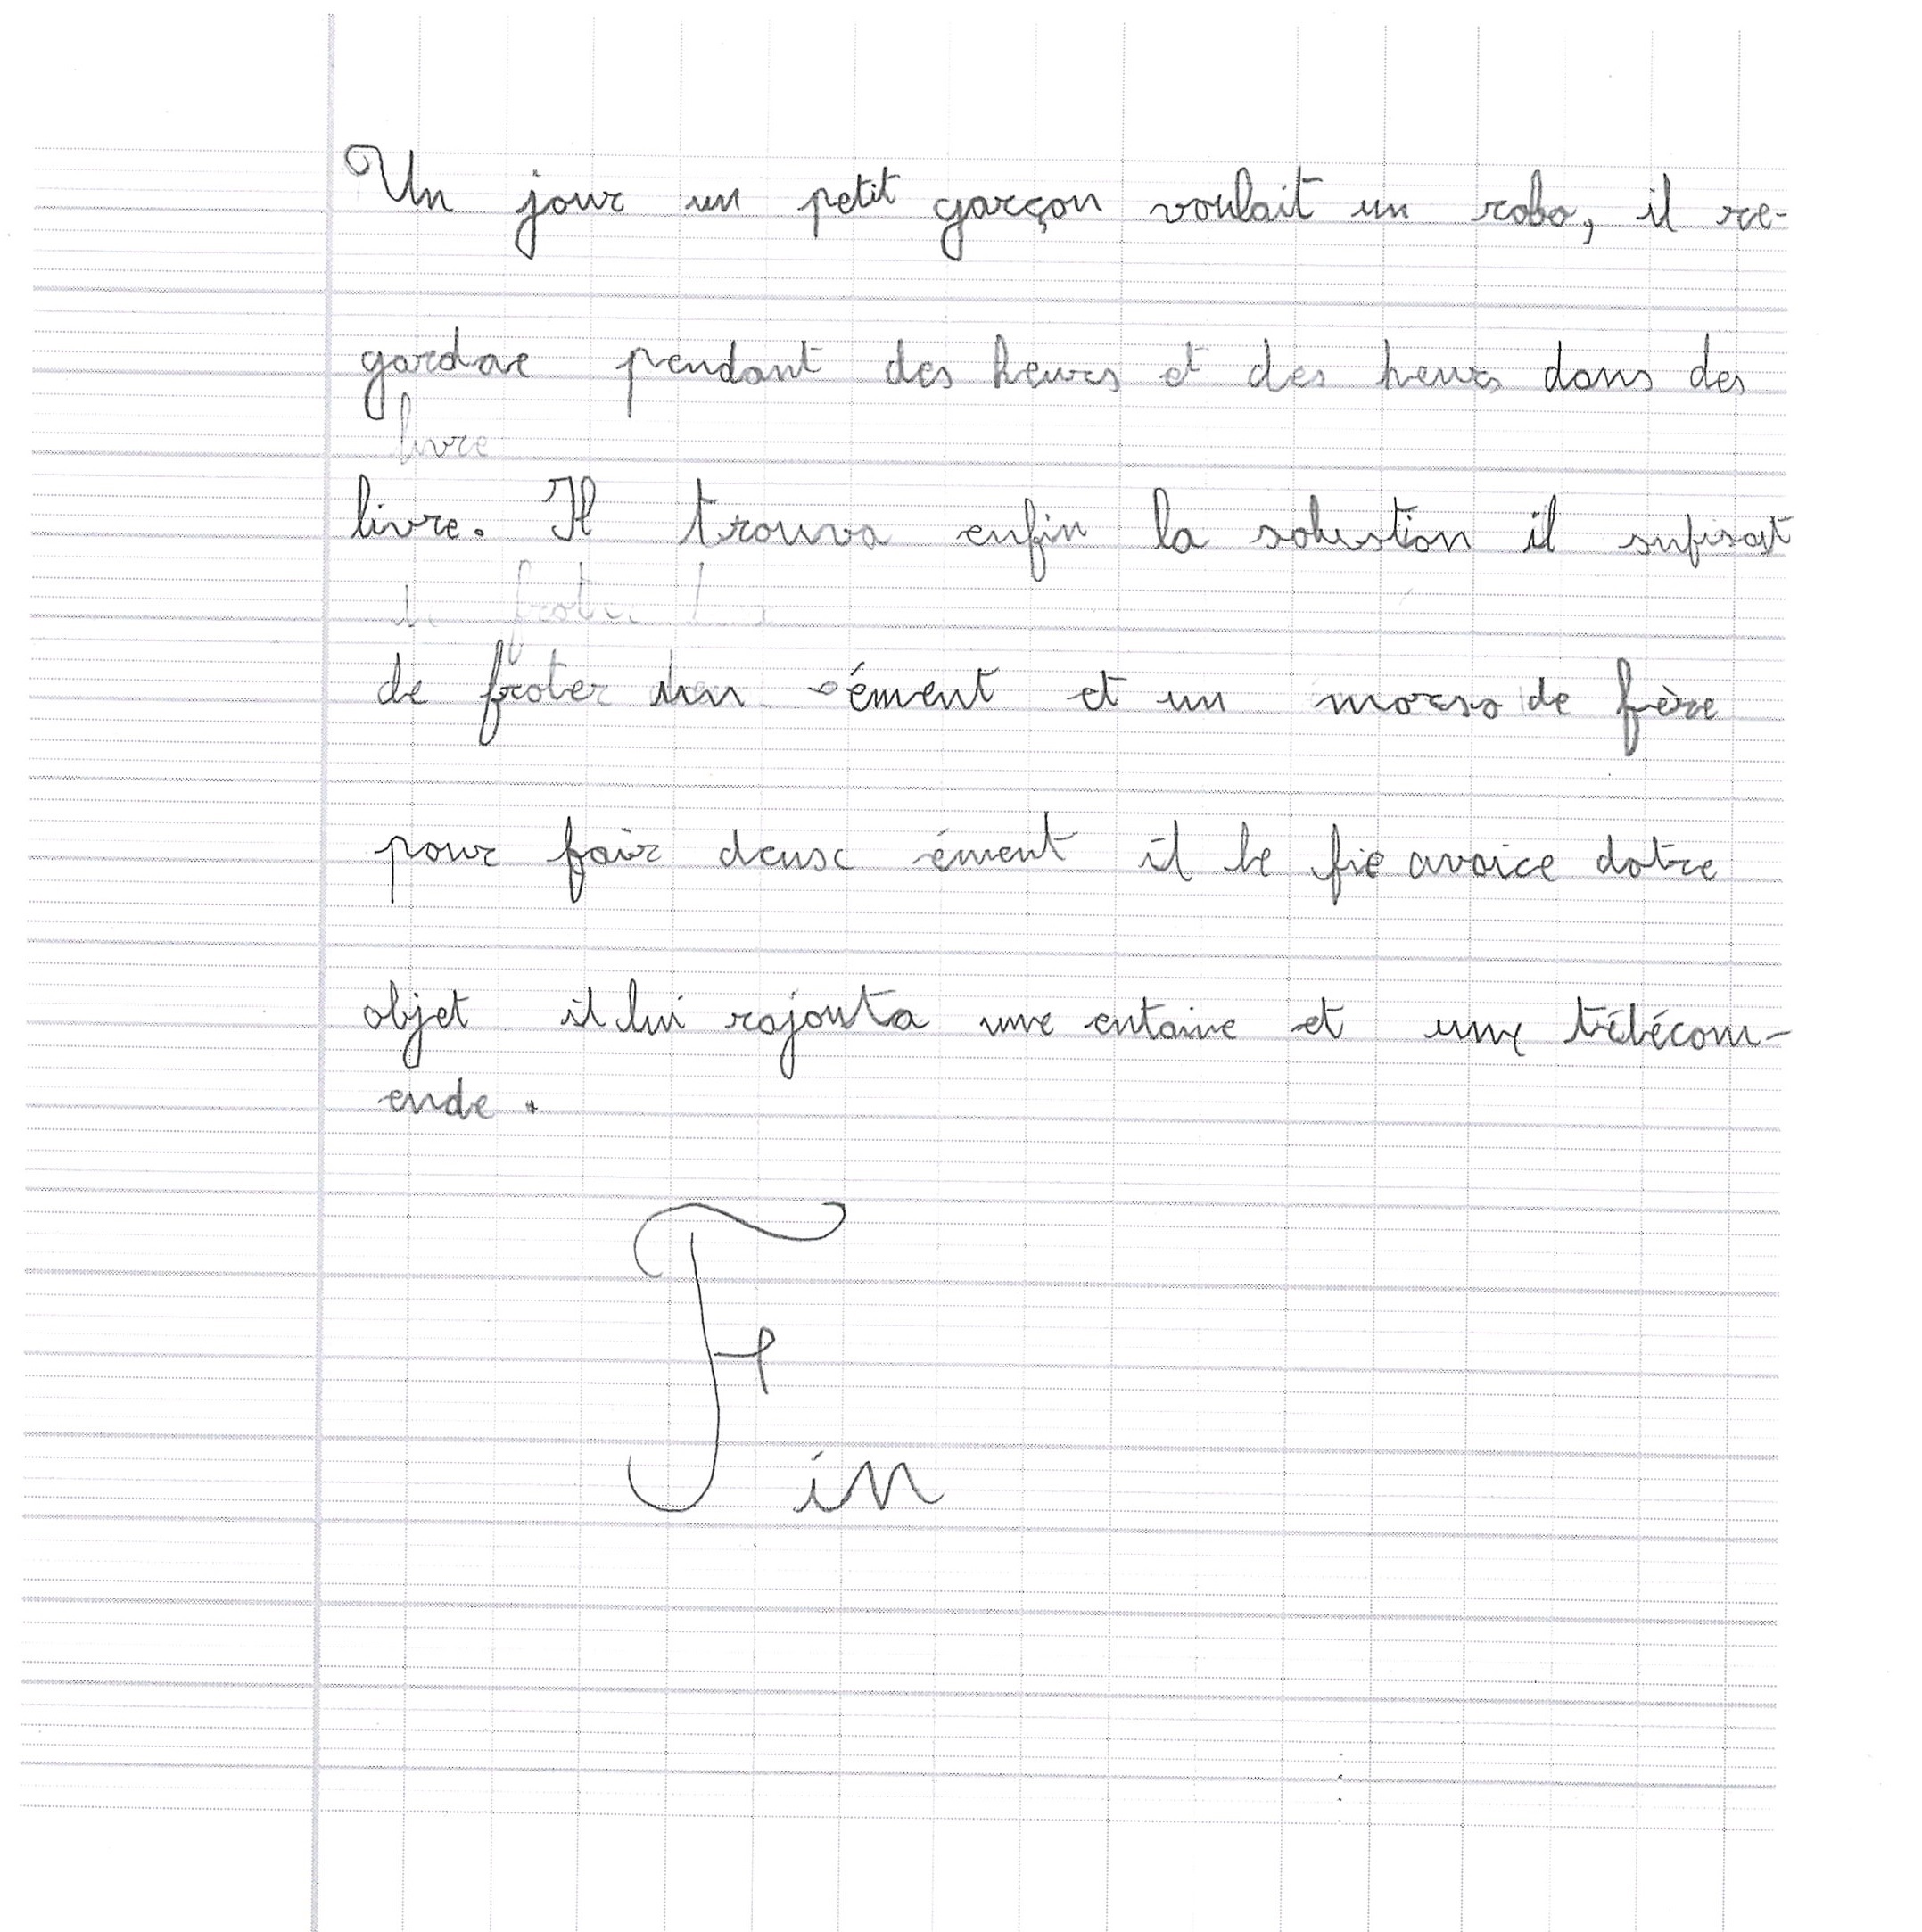 Un jour un petit garçon voulait un robo, il re-
gardae pendant des heures et des heurs dans des
livre
livre. Il trouva enfin la solustion il sufisait
froter
de froter un éément et un morso de fère
pour fair deusc ément il le fie avaice dotre
objet il lui rajouta une entaine et une télécom-
ende.
Fin